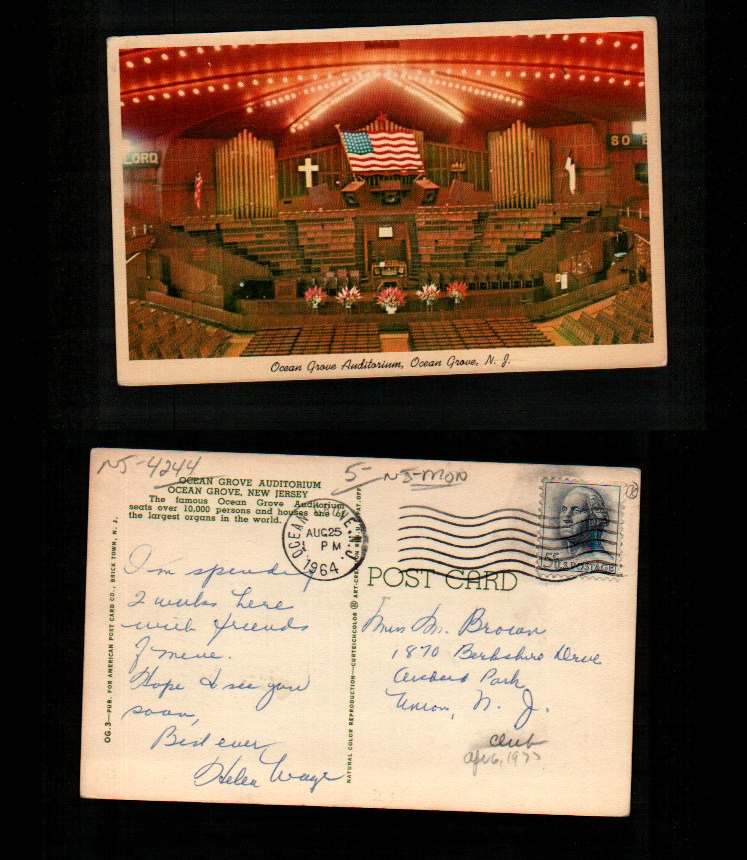 LORD
SO
Ocean Grove Auditorium, Ocean Grove, N. J.
NJ-4244
5-
NJ-MON
OCEAN GROVE AUDITORIUM
OCEAN GROVE, NEW JERSEY
The famous Ocean Grove Auditorium
seats over 10,000 persons and houses one of
the largest organs in the world.
OCEAN GROVE, N.J.
AUG 25
PM
1964
5¢ U.S. POSTAGE
POST CARD
I'm spending
2 weeks here
with friends
of mine.
Hope to see you
soon,
Best ever
Helen Wage
Miss M. Brown
1870 Berkshire Drive
Orchard Park
Union, N. J.
club
OG.3—PUB. FOR AMERICAN POST CARD CO., BRICK TOWN, N. J.
NATURAL COLOR REPRODUCTION—CURTEICHCOLOR ® ART-CREATION REG. U.S. PAT. OFF.